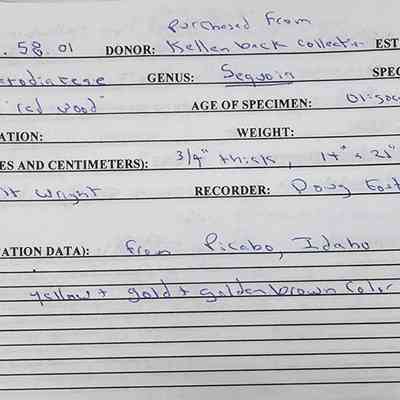 Purchased From
. 58. 01 DONOR: Kellenback collectin EST
GENUS: Sequoia SPEC
"red wood" AGE OF SPECIMEN: Oligoc
ATION: WEIGHT:
ES AND CENTIMETERS): 3/4" thick, 14" x 21"
Wright RECORDER: Doug
ATION DATA): From Picabo, Idaho
yellow + gold + golden brown color